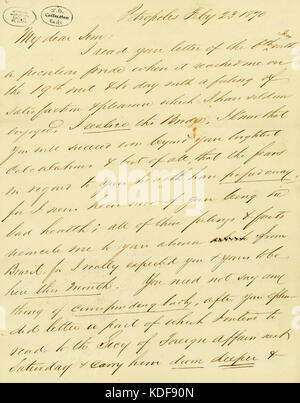 Petropolis Feby 23 1870
My dear Jim:
I read your letter of the
a peculiar pride when it reached me on
the 19th inst & to day with a feeling of
satisfaction & pleasure which I have seldom
enjoyed. I realize the Bridge. I know that
you will succeed even beyond your brightest
calculations & best of all, that the fears
in regard to your health have
for I never hear now of your being in
bad health; all of these feelings & facts
reconcile me to your absence from
Brazil for I really expected you & yours to be
here this month. You need not say any
thing of corresponding badly, after your splen
did letter a part of which I intend to
read to the Secy of Foreign Affairs next
Saturday & carry him down deeper &
alamy
Image ID: KDF90N
www.alamy.com